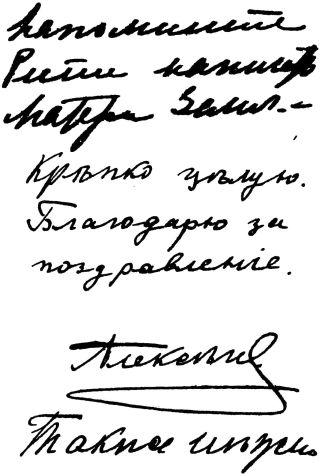 напомните
Рити написать
матери Земл.-
Крѣпко цѣлую.
Благодарю за
поздравленіе.
Алексѣй